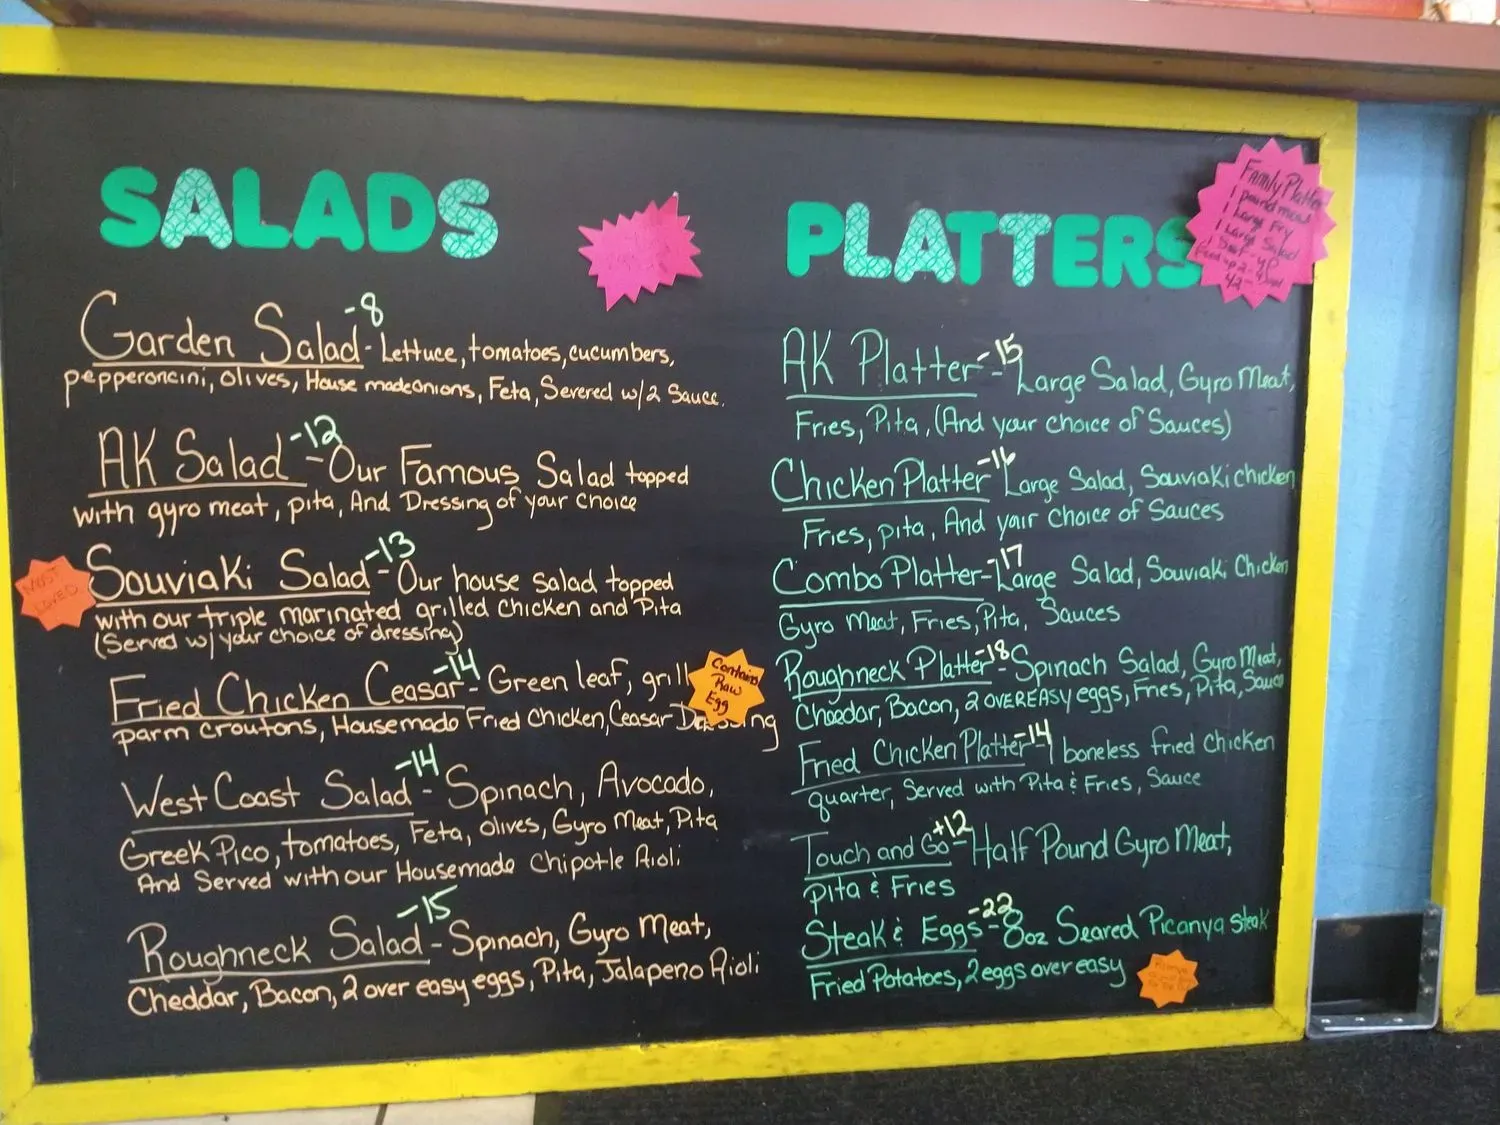 SALADS
Garden Salad -8 - Lettuce, tomatoes, cucumbers,
pepperoncini, olives, House made onions, Feta, Severed w/2 Sauce.
AK Salad -12 - Our Famous Salad topped
with gyro meat, pita, And Dressing of your choice
MOST
LOVED
Souviaki Salad -13 - Our house salad topped
with our triple marinated grilled chicken and Pita
(Served w/ your choice of dressing)
Fried Chicken Ceasar -14 - Green leaf, grill
parm croutons, Housemade Fried chicken, Ceasar Dressing
Contains
Raw
Egg
West Coast Salad -14 - Spinach, Avocado,
Greek Pico, tomatoes, Feta, olives, Gyro Meat, Pita
And Served with our Housemade Chipotle Aioli
Roughneck Salad -15 - Spinach, Gyro Meat,
Cheddar, Bacon, 2 over easy eggs, Pita, Jalapeno Aioli
PLATTERS
Family Platter
1 pound meat
1 Large Fry
1 Large Salad
42-
AK Platter -15 - Large Salad, Gyro Meat,
Fries, Pita, (And your choice of Sauces)
Chicken Platter -16 Large Salad, Souviaki chicken
Fries, pita, And your choice of Sauces
Combo Platter -17 - Large Salad, Souviaki Chicken
Gyro Meat, Fries, Pita, Sauces
Roughneck Platter -18 - Spinach Salad, Gyro Meat,
Chaedar, Bacon, 2 OVEREASY eggs, Fries, Pita, Sauce
Fried Chicken Platter -14 - boneless fried chicken
quarter, Served with Pita & Fries, Sauce
Touch and Go +12 - Half Pound Gyro Meat,
Pita & Fries
Steak & Eggs -22 - 8oz Seared Picanya Steak
Fried Potatoes, 2 eggs over easy